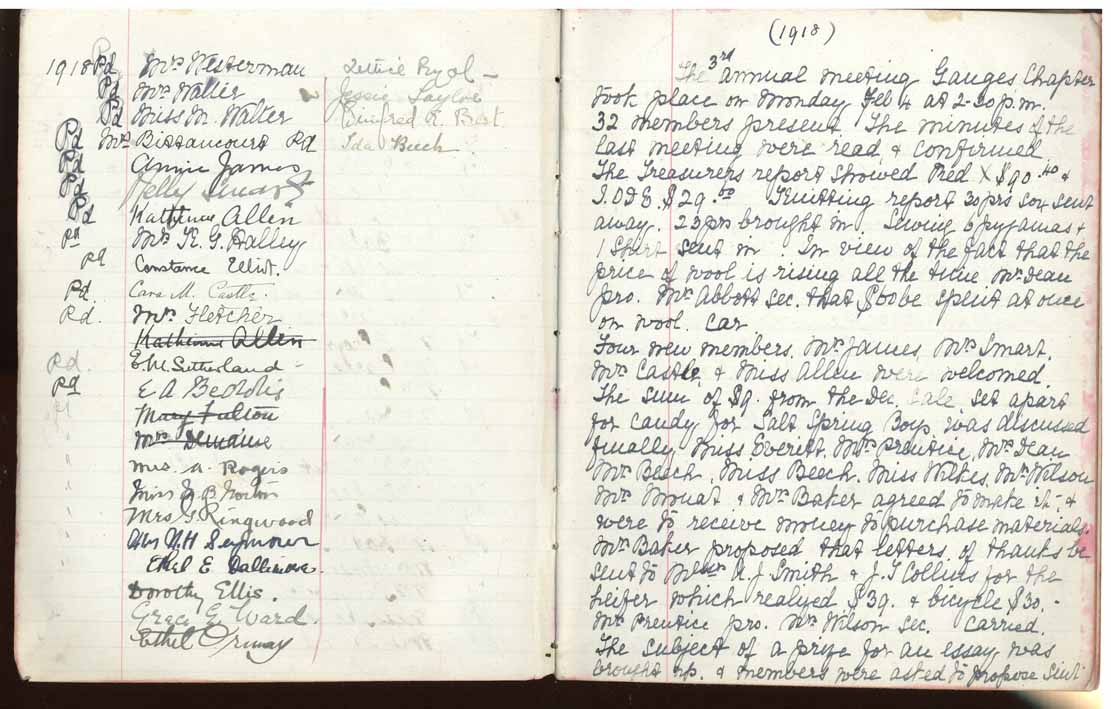 1918 Pd Mrs Westerman
Pd Mrs Walter
Pd Miss M. Walter
Pd Mrs Bittancourt Pd
Pd Annie James
Pd Nelly Smart
Pd Katherine Allen
Pd Mrs K. G. Halley
Pd Constance Elliot.
Pd. Cara M. Castle.
Pd. Mrs Fletcher
Katherine Allen
Pd. E. M. Sutherland
Pd E A Beddis
Mary Fulton
Mrs Demaine
" Mrs. A. Rogers
" Miss B Norton
" Mrs G. Ringwood
" Mrs N. H Seymour
" Ethel E Dallimore.
Dorothy Ellis.
Grace E. Ward
Ethel
Lettice
Jessie Taylor
Winifred A. Best.
Ida Beech
(1918)
The 3rd annual meeting Ganges Chapter
took place on Monday Feb 4 at 2-30 p.m.
32 members present. The minutes of the
last meeting were read & confirmed.
The Treasurers report showed Red X $90.40 &
I.O.D.E. $29.00 Knitting report 30 prs sox sent
away. 23 prs brought in. Sewing 6 pyjamas &
1 Shirt sent in. In view of the fact that the
price of wool is rising all the time Mrs Dean
pro. Mrs Abbott sec. that $ be spent at once
on wool. Car
Four new members. Mrs James, Mrs Smart.
Mrs Castle & Miss Allen were welcomed.
The sum of $9. from the Dec. Sale, set apart
for candy for Salt Spring Boys, was discussed
finally Miss Everett, Mrs Prentice, Mrs Dean
Mrs Beech, Miss Beech. Miss Wilkes, Mrs Wilson
Mrs Mouat & Mrs Baker agreed to make it, &
were to receive money to purchase materials.
Mrs Baker proposed that letters of thanks be
sent to Messrs A. J Smith & J. T Collins for the
heifer which realized $39. & bicycle $30.-
Mrs Prentice pro. Mrs Wilson sec. Carried.
The subject of a prize for an essay was
brought up. & members were asked to propose suit